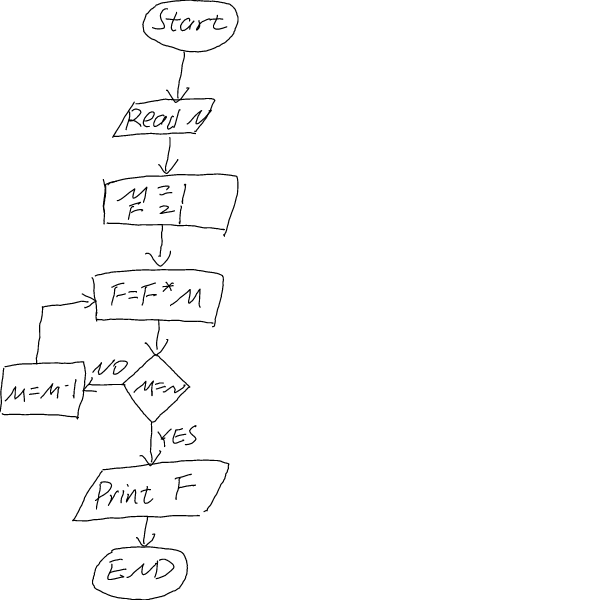 Start
Read N
M=1
F=1
F=F*M
NO
M=M-1
M=N
YES
Print F
END